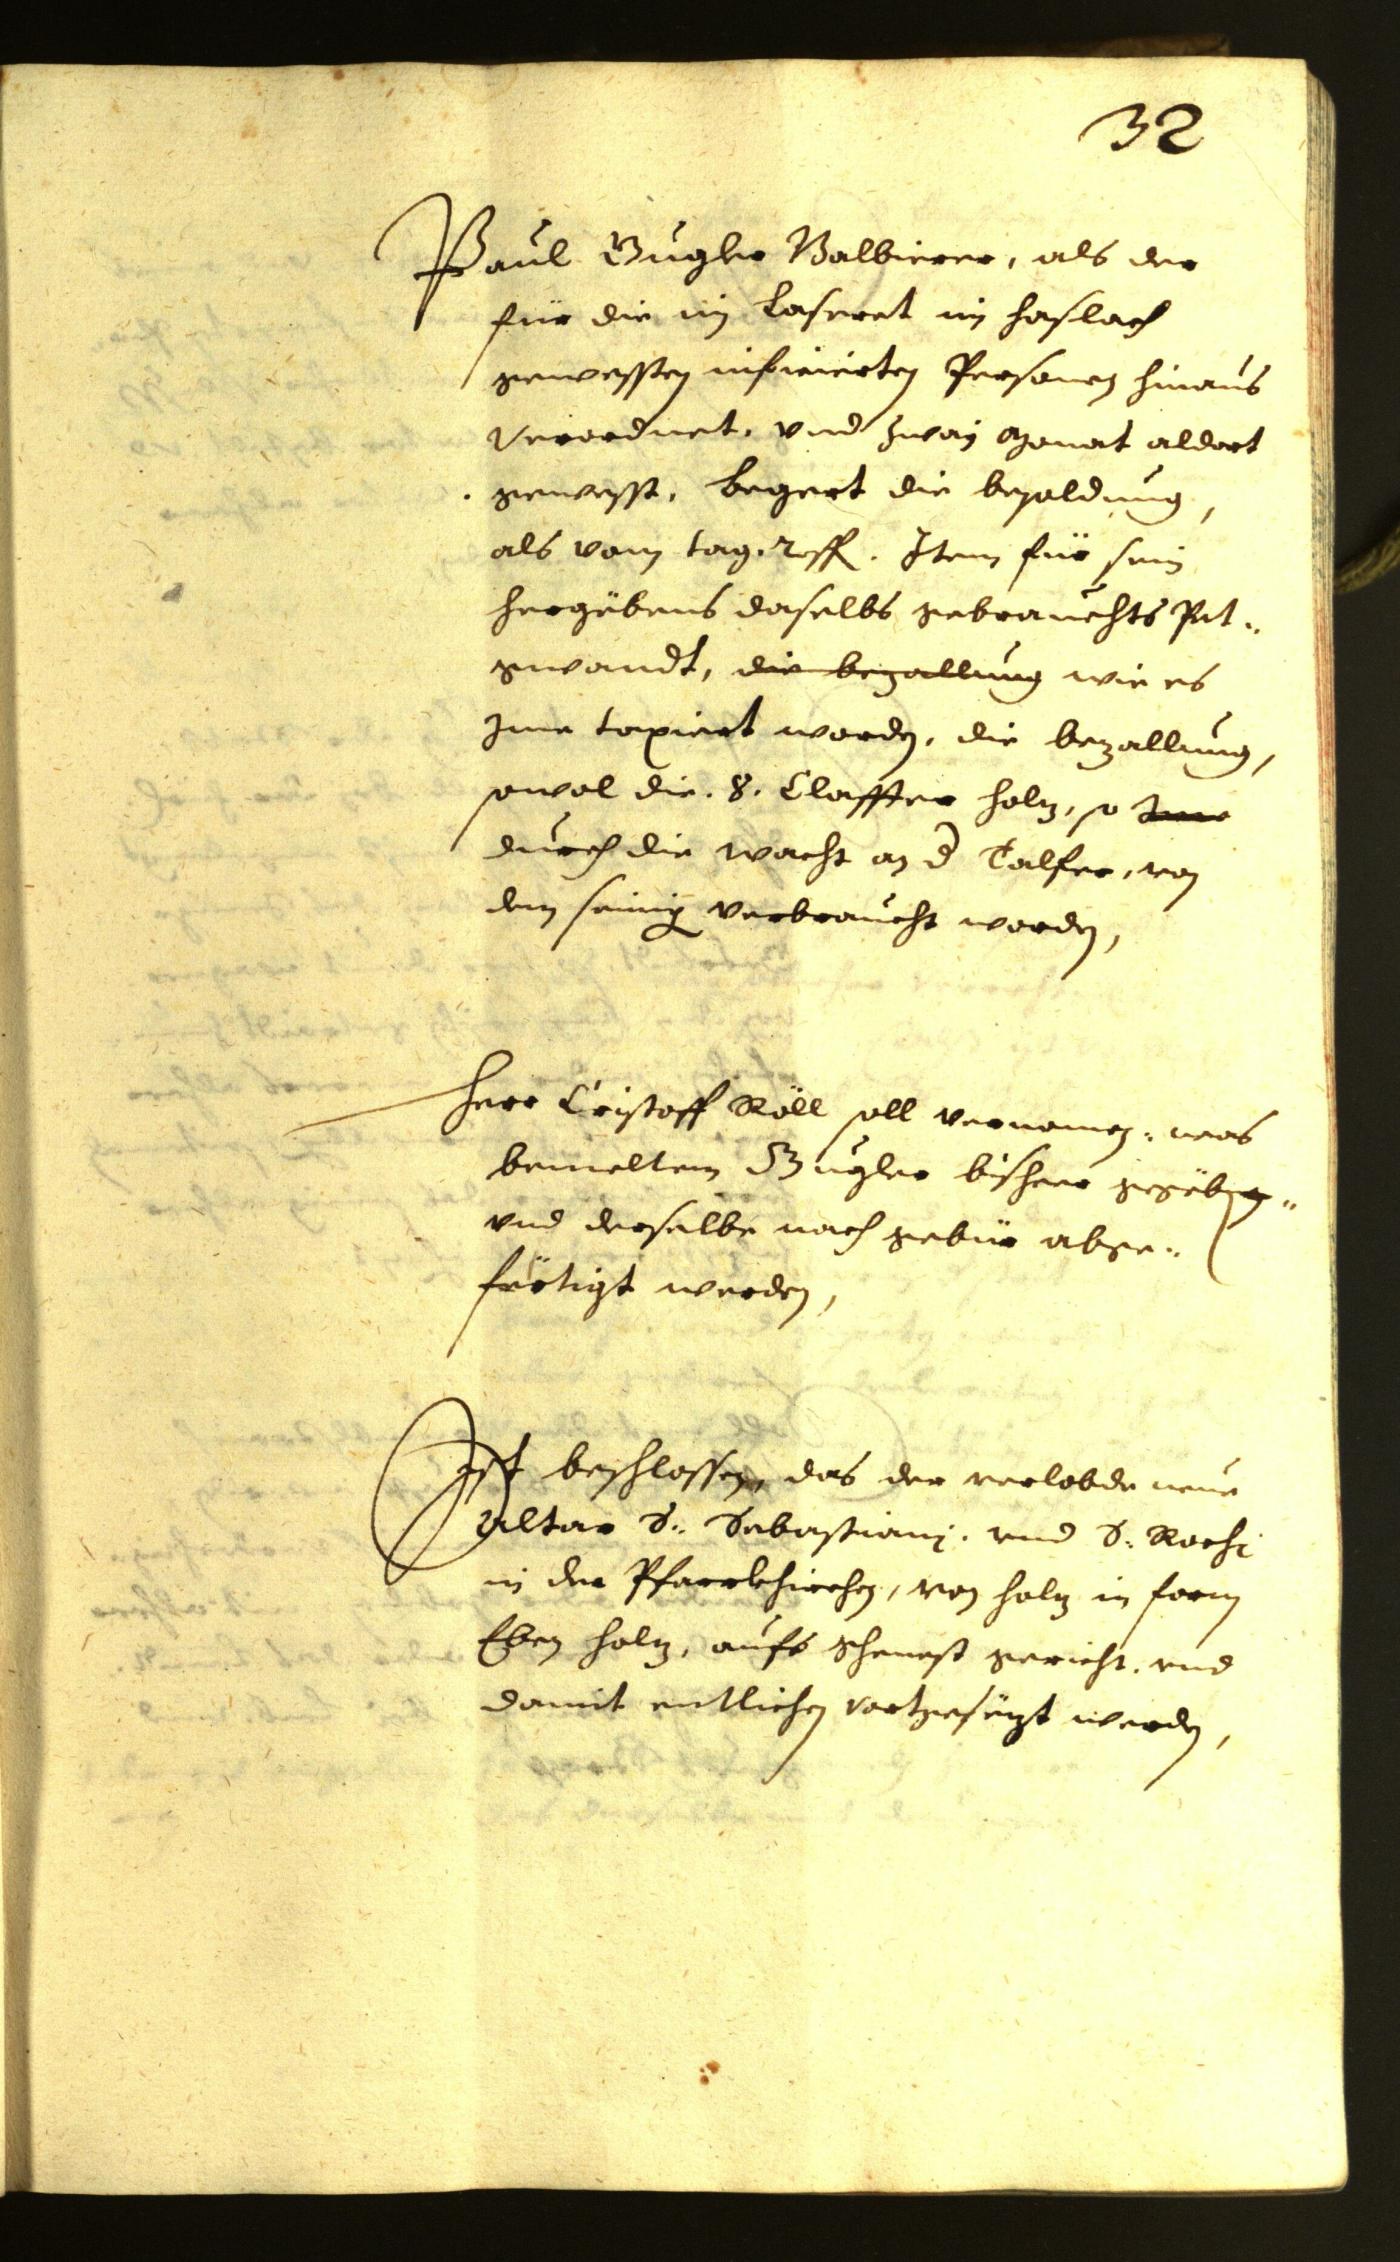 32
Paul Gugler Balbierer, als der
für die im Laseret im Haslach
gewessten inficierten Personen hinaus
verordnet, vnd zway Monat aldort
gewesst, begert die besoldung,
als vom tag. 2 ff. Item für sein
hergebens daselbs gebrauchts Pet¬
gwandt, die bezallung wie es
Ime taxiert worden, die bezallung,
sowol die .8. Claffter holz, so Ime
durch die wacht an d Talfer, von
dem seinig verbraucht worden,
Herr Cristoff Röll soll vernomen, was
bemeltem Gugler bisheer gegeben,
vnd derselbe nach gebür abge¬
fertigt werden,
Ist beschlossen, das der verlobde neue
Altar S: Sebastianj. vnd S: Rochj
in der Pfarrkhirchen, von holz in form
Eben holz, aufs ehenest gericht, vnd
damit entlichen vortgesezt werden,